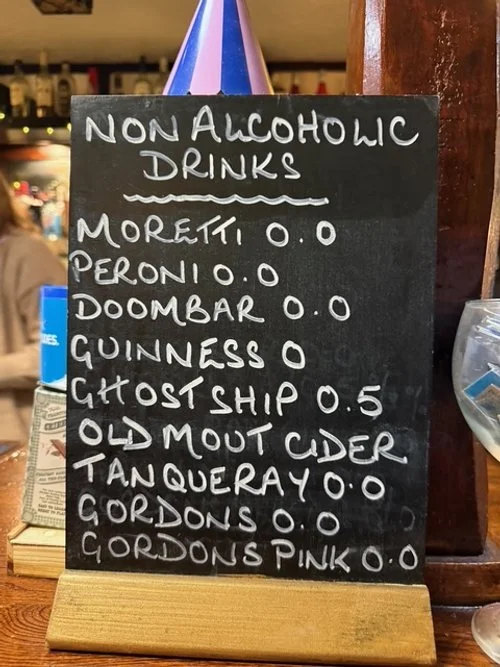 NON ALCOHOLIC
DRINKS
MORETTI 0.0
PERONI 0.0
DOOMBAR 0.0
GUINNESS 0
GHOST SHIP 0.5
OLD MOUT CIDER
TANQUERAY 0.0
GORDONS 0.0
GORDONS PINK 0.0